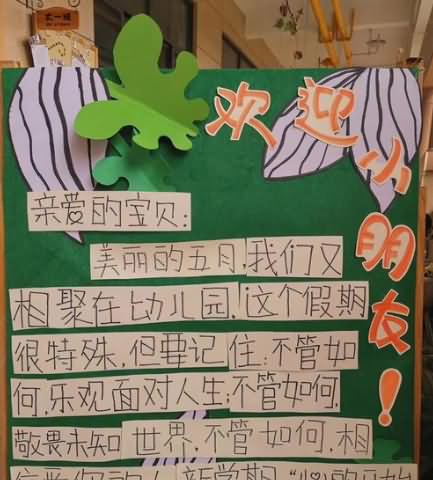 大一班
欢迎小朋友!
亲爱的宝贝:
美丽的五月,我们又
相聚在幼儿园,这个假期
很特殊,但要记住:不管如
何,乐观面对人生;不管如何,
敬畏未知世界,不管如何,相
新学期,